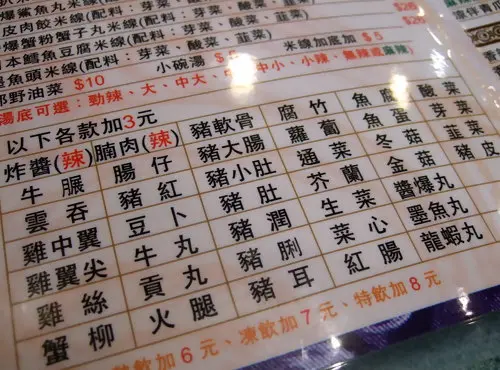 爆鯊魚丸米線(配料：芽菜、酸菜、韮菜)
皮肉餃米線(配料：芽菜、酸菜、韮菜) $26
爆蟹粉蟹子丸米線(配料：芽菜、酸菜、韮菜) $28
本鱈魚豆腐米線(配料：芽菜、酸菜、韮菜)
墨魚頭米線(配料：芽菜、酸菜、韮菜)
野油菜 $10 小碗湯 米線加底加 $5
湯底可選：勁辣、大、中大、中小、小辣、無辣或麻辣
以下各款加3元
炸醬(辣) 腩肉(辣) 豬軟骨 腐竹 魚腐 酸菜
牛 腸仔 豬大腸 蘿蔔 魚蛋 芽菜
雲吞 豬紅 豬小肚 通菜 冬菇 韮菜
雞中翼 豆卜 豬肚 芥蘭 金菇 豬皮
雞翼尖 牛丸 豬潤 生菜 醬爆丸
雞絲 貢丸 豬脷 菜心 墨魚丸
蟹柳 火腿 豬耳 紅腸 龍蝦丸
飲加6元、凍飲加7元、特飲加8元